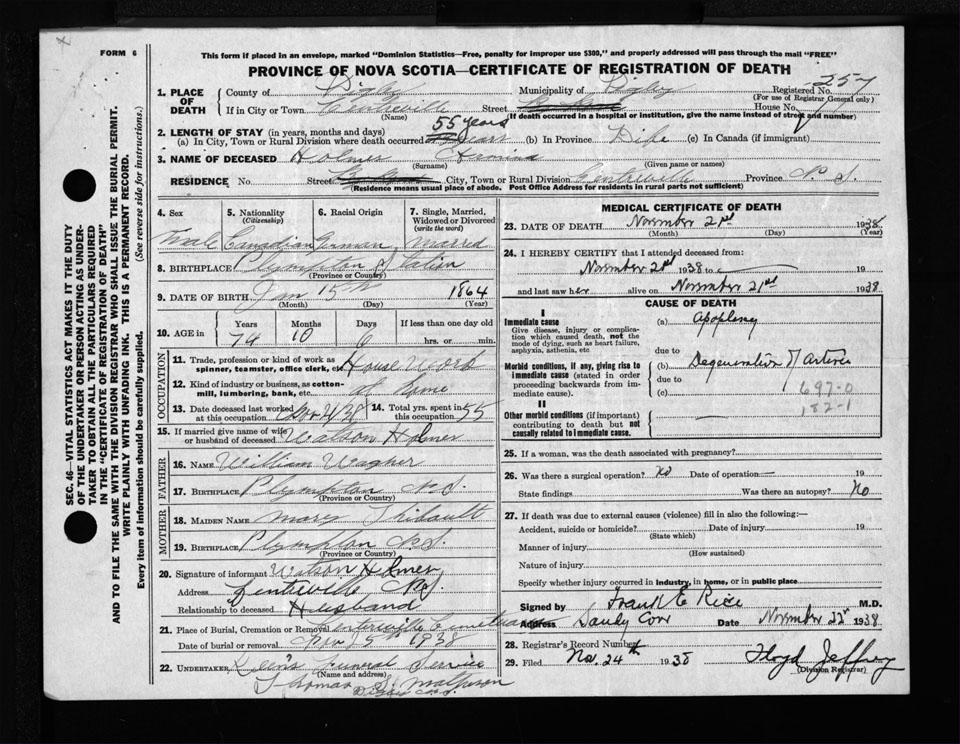 FORM 6
This form if placed in an envelope, marked "Dominion Statistics—Free, penalty for improper use $300," and properly addressed will pass through the mail "FREE"
PROVINCE OF NOVA SCOTIA—CERTIFICATE OF REGISTRATION OF DEATH
1. PLACE OF DEATH County of Digby Municipality of Digby Registered No. 257
(For use of Registrar General only)
If in City or Town Centreville Street House No.
(Name) (If death occurred in a hospital or institution, give the name instead of street and number)
55 years
2. LENGTH OF STAY (in years, months and days)
(a) In City, Town or Rural Division where death occurred years (b) In Province Life (c) In Canada (if immigrant)
3. NAME OF DECEASED Holmes
(Surname) (Given name or names)
RESIDENCE No. Street City, Town or Rural Division Centreville Province N. S.
(Residence means usual place of abode. Post Office Address for residents in rural parts not sufficient)
4. Sex 5. Nationality (Citizenship) 6. Racial Origin 7. Single, Married, Widowed or Divorced (write the word)
Canadian German Married
8. BIRTHPLACE Plympton Station
(Province or Country)
9. DATE OF BIRTH Jan 15th 1864
(Month) (Day) (Year)
10. AGE in Years Months Days If less than one day old
74 10 6 hrs. or min.
OCCUPATION
11. Trade, profession or kind of work as spinner, teamster, office clerk, etc. House Work
12. Kind of industry or business, as cotton-mill, lumbering, bank, etc.
13. Date deceased last worked at this occupation Nov 21/38 14. Total yrs. spent in this occupation 55
15. If married give name of wife or husband of deceased Watson Holmes
FATHER
16. NAME William Wagner
17. BIRTHPLACE Plympton N.S.
(Province or Country)
MOTHER
18. MAIDEN NAME Mary Thibault
19. BIRTHPLACE Plympton N.S.
(Province or Country)
20. Signature of informant Watson Holmes
Address Centreville N.S.
Relationship to deceased Husband
21. Place of Burial, Cremation or Removal Centreville
Date of burial or removal Nov 1938
22. UNDERTAKER Funeral Service
(Name and address)
Thomas
MEDICAL CERTIFICATE OF DEATH
23. DATE OF DEATH November 21st 1938
(Month) (Day) (Year)
24. I HEREBY CERTIFY that I attended deceased from:
November 21st 1938 to 19
and last saw her alive on November 21st 1938
CAUSE OF DEATH
I
Immediate cause
Give disease, injury or complication which caused death, not the mode of dying, such as heart failure, asphyxia, asthenia, etc
(a) Apoplexy
due to
Morbid conditions, if any, giving rise to immediate cause (stated in order proceeding backwards from immediate cause).
(b) Degeneration of Arteries
due to
(c) 697-0
182-1
II
Other morbid conditions (if important) contributing to death but not causally related to immediate cause.
25. If a woman, was the death associated with pregnancy?
26. Was there a surgical operation? No Date of operation 19
State findings Was there an autopsy? No
27. If death was due to external causes (violence) fill in also the following:—
Accident, suicide or homicide? Date of injury 19
(State which)
Manner of injury
(How sustained)
Nature of injury
Specify whether injury occurred in industry, in home, or in public place
Signed by Frank E Rice M.D.
Address Sandy Cove Date November 22nd 1938
28. Registrar's Record Number
29. Filed Nov. 24th 1938 Floyd Jeffrey
(Division Registrar)
SEC. 46—VITAL STATISTICS ACT MAKES IT THE DUTY
OF THE UNDERTAKER OR PERSON ACTING AS UNDER-
TAKER TO OBTAIN ALL THE PARTICULARS REQUIRED
IN THE "CERTIFICATE OF REGISTRATION OF DEATH"
AND TO FILE THE SAME WITH THE DIVISION REGISTRAR WHO SHALL ISSUE THE BURIAL PERMIT.
WRITE PLAINLY WITH UNFADING INK. THIS IS A PERMANENT RECORD.
Every item of information should be carefully supplied. (See reverse side for instructions.)